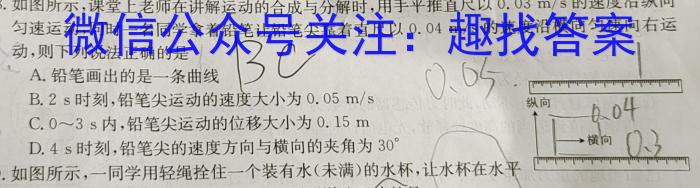 8.如图所示,课堂上老师在讲解运动的合成与分解时,用手平推直尺以0.03 m/s的速度沿纵向
匀速运动,同时一名同学拿着铅笔让铅笔尖靠着直尺以0.04 m/s的速度沿横向匀速向右运
微信公众号关注:趣找答案
动,则下列说法正确的是
BC
A.铅笔画出的是一条曲线
0.05
B.2 s时刻,铅笔尖运动的速度大小为0.05 m/s
纵向
0.04
C.0~3 s内,铅笔尖运动的位移大小为0.15 m
横向
0.3
D.4 s时刻,铅笔尖的速度方向与横向的夹角为30°
.如图所示,一同学用轻绳拴住一个装有水(未满)的水杯,让水杯在水平